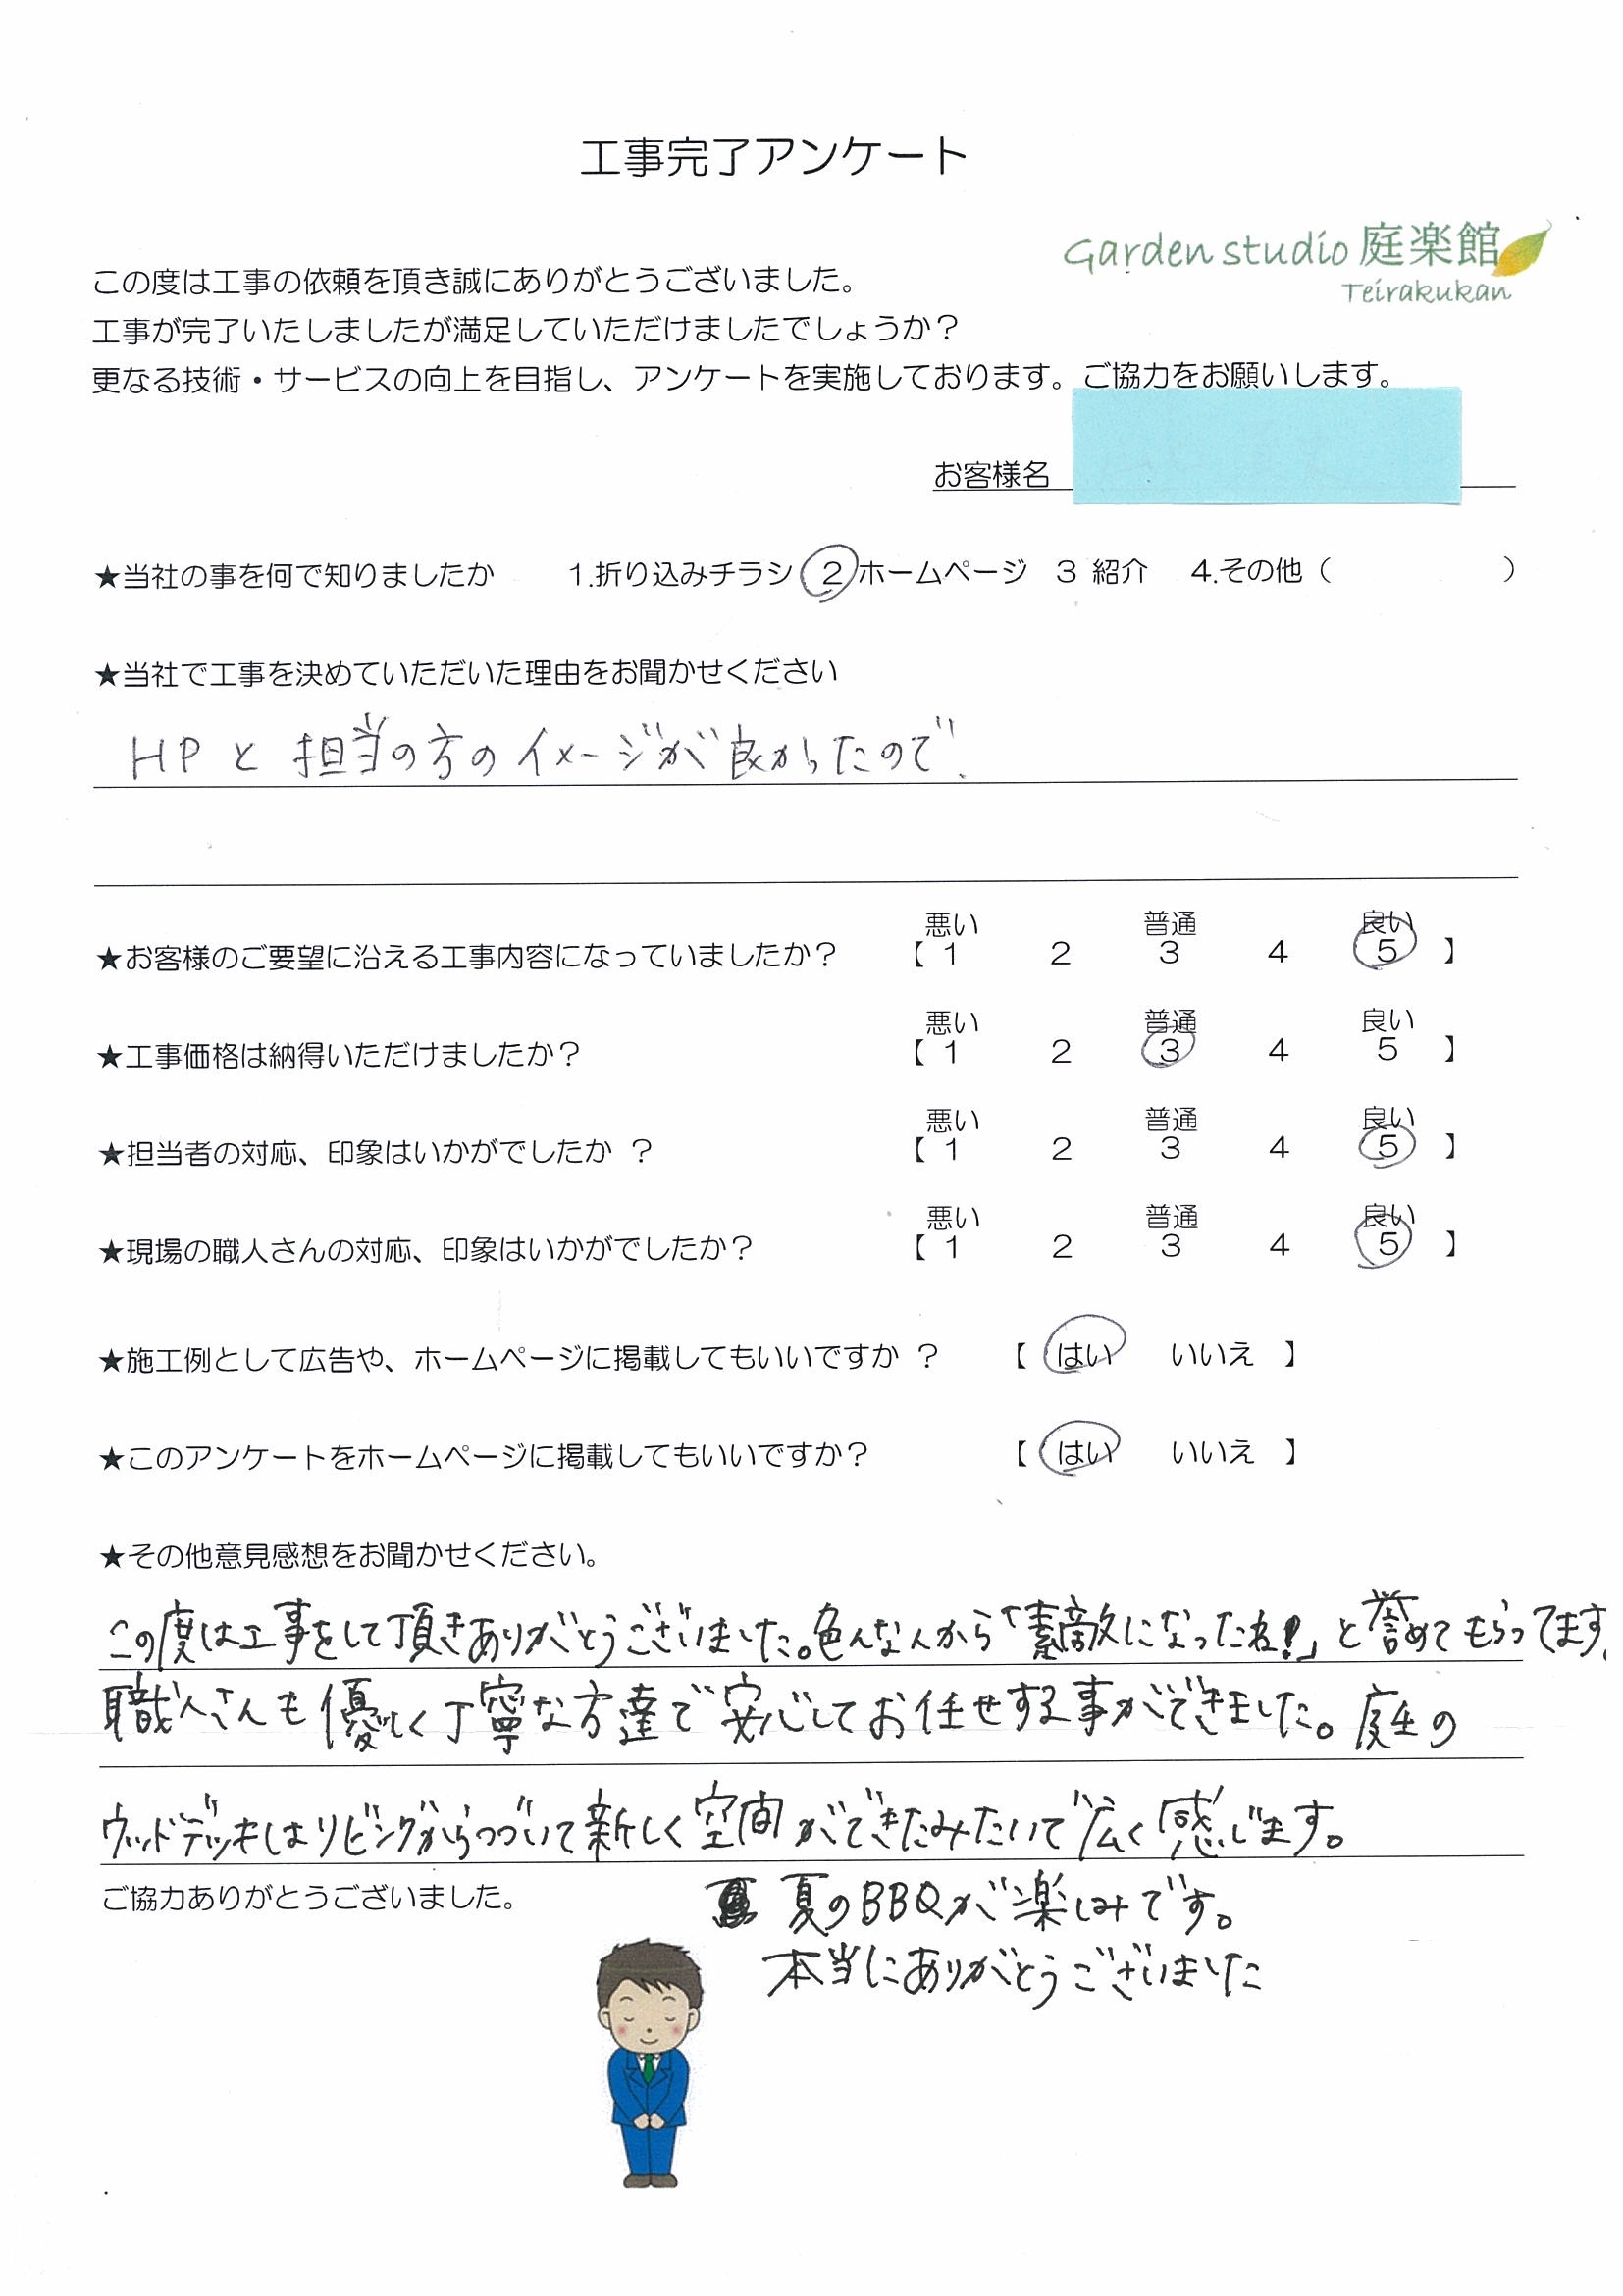 工事完了アンケート
Garden studio 庭楽館
Teirakukan
この度は工事の依頼を頂き誠にありがとうございました。
工事が完了いたしましたが満足していただけましたでしょうか？
更なる技術・サービスの向上を目指し、アンケートを実施しております。ご協力をお願いします。
お客様名
★当社の事を何で知りましたか 1.折り込みチラシ 2 ホームページ 3 紹介 4.その他（ ）
★当社で工事を決めていただいた理由をお聞かせください
HPと担当の方のイメージが良かったので、
悪い 普通 良い
★お客様のご要望に沿える工事内容になっていましたか？ 【 1 2 3 4 5 】
悪い 普通 良い
★工事価格は納得いただけましたか？ 【 1 2 3 4 5 】
悪い 普通 良い
★担当者の対応、印象はいかがでしたか ？ 【 1 2 3 4 5 】
悪い 普通 良い
★現場の職人さんの対応、印象はいかがでしたか？ 【 1 2 3 4 5 】
★施工例として広告や、ホームページに掲載してもいいですか ？ 【 はい いいえ 】
★このアンケートをホームページに掲載してもいいですか？ 【 はい いいえ 】
★その他意見感想をお聞かせください。
この度は工事をして頂きありがとうございました。色んな人から「素敵になったね!」と誉めてもらってます。
職人さんも優しく丁寧な方達で安心してお任せする事ができました。庭の
ウッドデッキはリビングからつづいて新しく空間ができたみたいで広く感じます。
ご協力ありがとうございました。
夏のBBQが楽しみです。
本当にありがとうございました